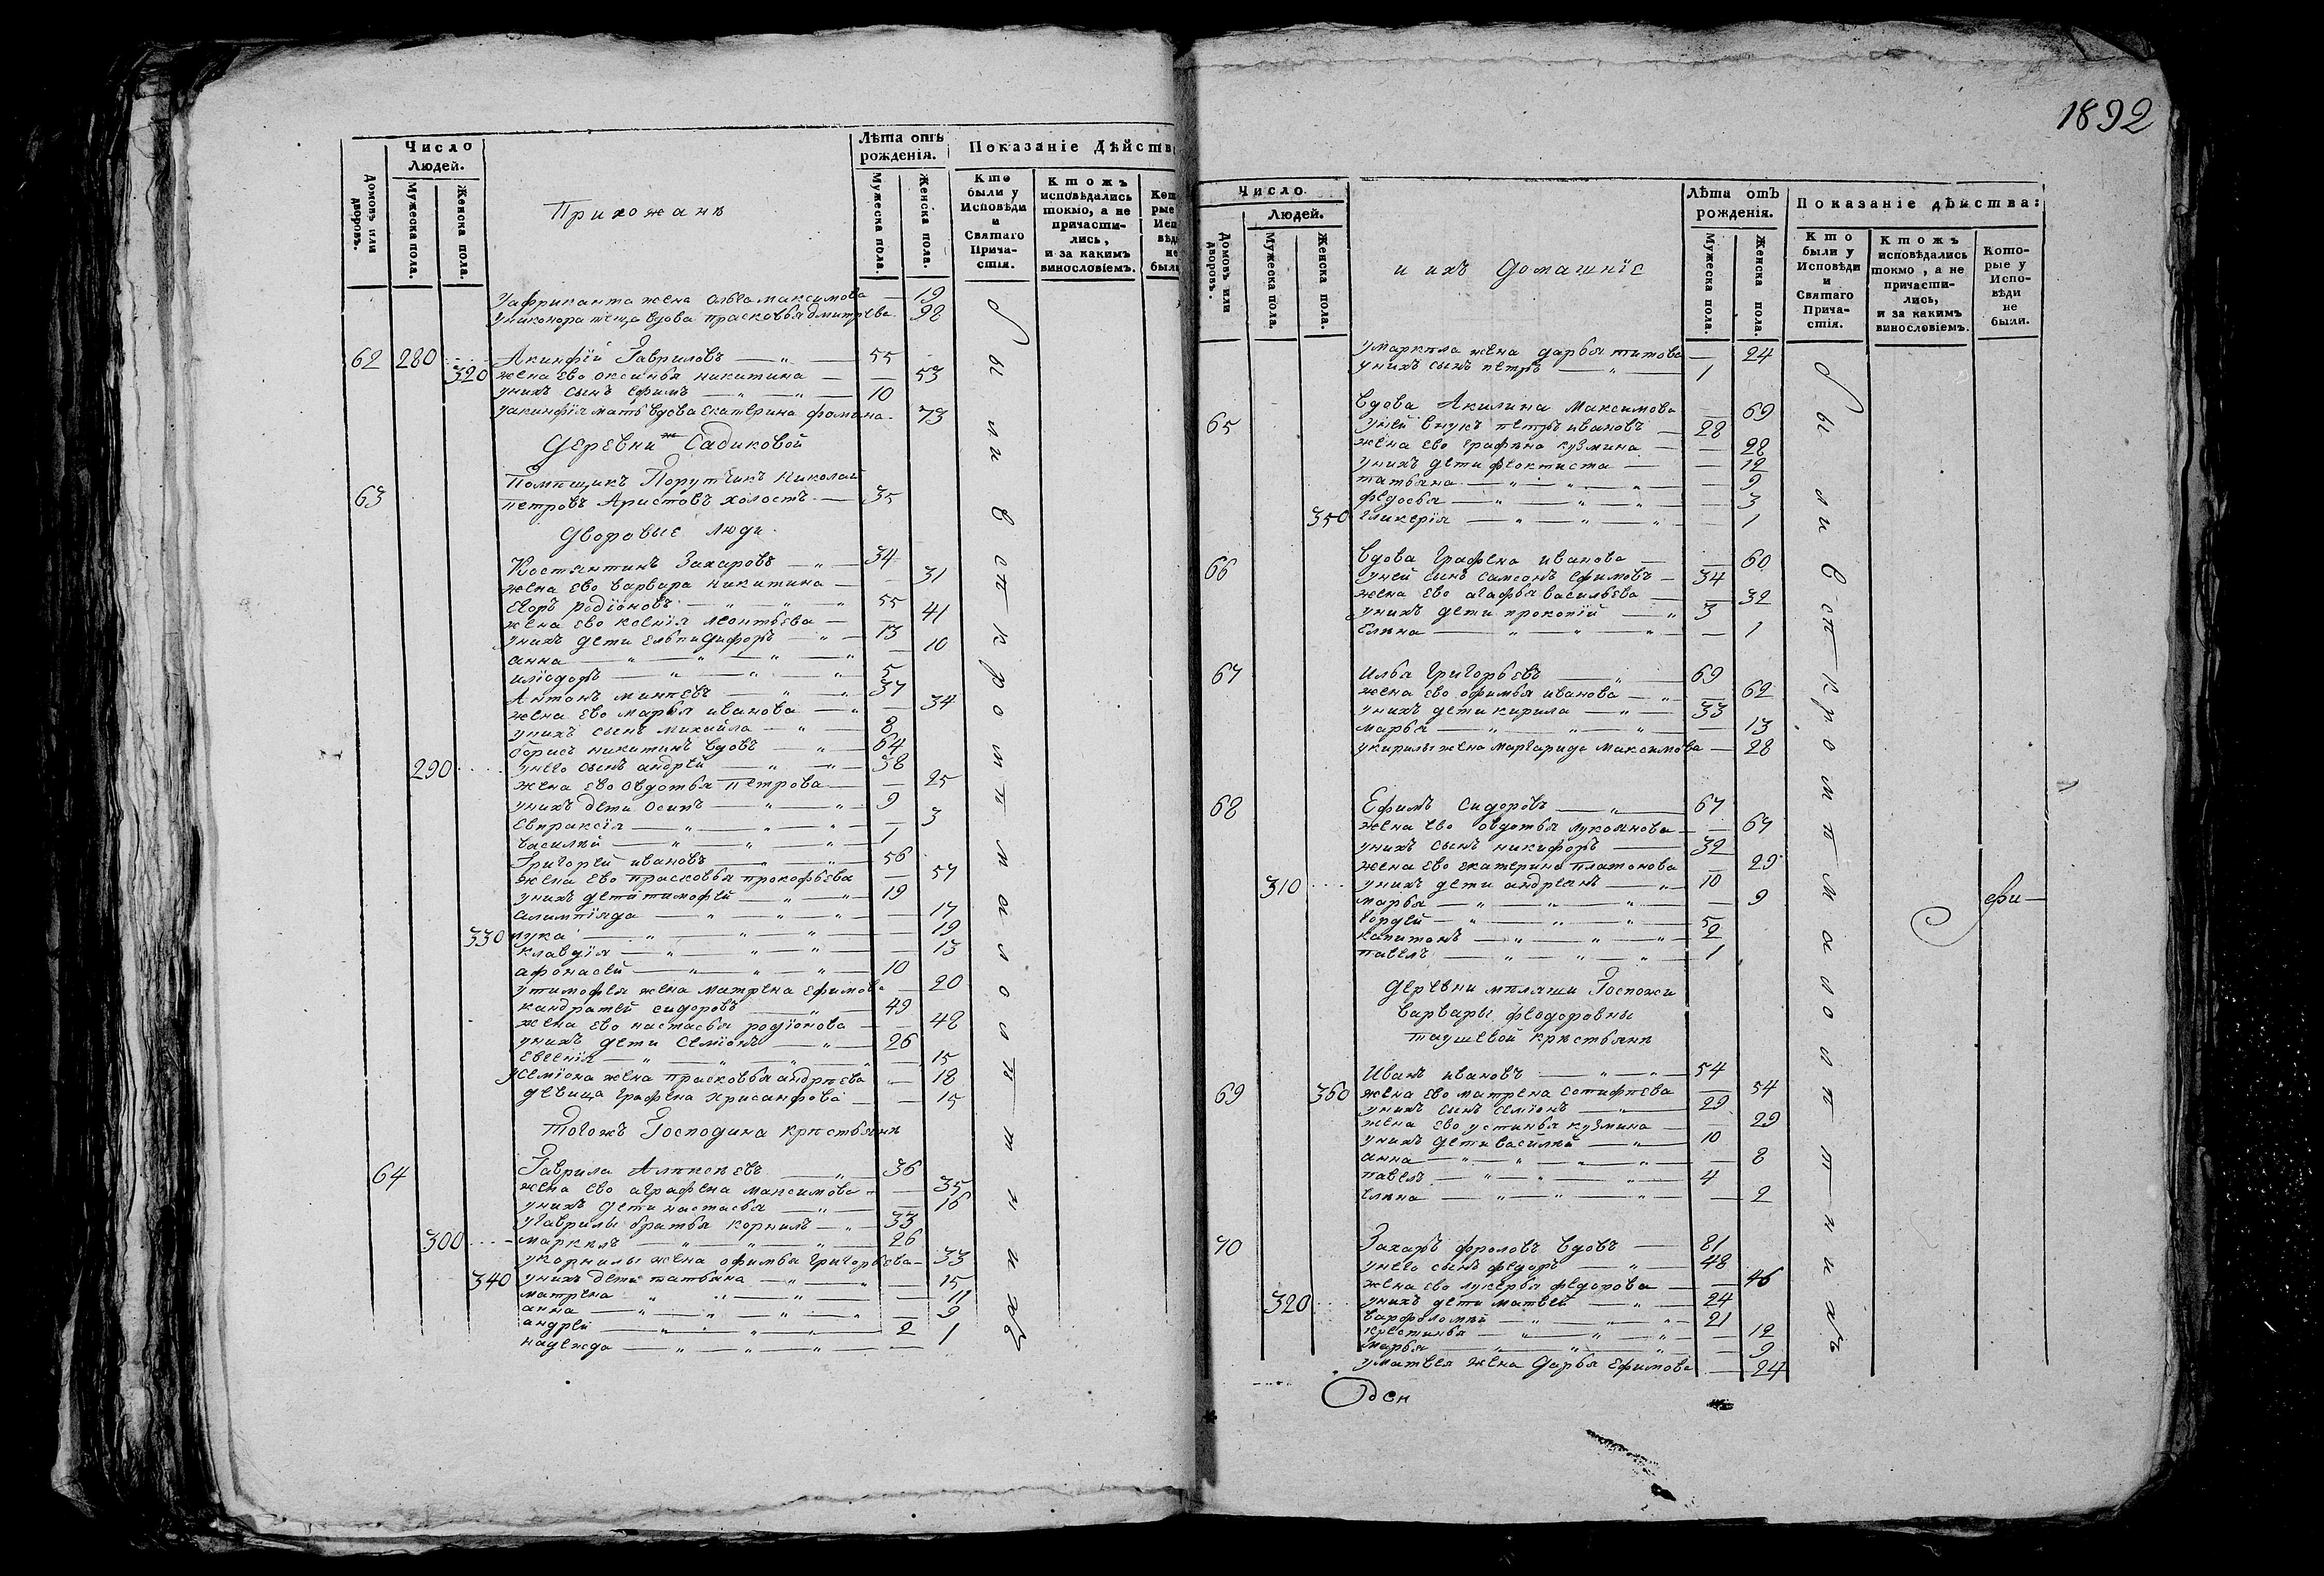 Число
Людей.
Домовъ или дворовъ.
Мужеска пола.
Женска пола.
Прихожанѣ
Лѣта отъ рожденія.
Мужеска пола.
Женска пола.
Показаніе Дѣйств
Кто были у Исповѣди и Святаго Причастія.
Ктожъ исповѣдались токмо, а не причастились, и за какимъ винословіемъ.
были у исповѣди и малолѣтнихъ
уафриканта жена Ольга максимова — 19
униконора теща вдова прасковья дмитрева 98
62 280 Акинфій Гавриловъ 55
320 жена ево оксинья никитина — 53
унихъ сынъ ефимъ 10
уакинфія мать вдова екатерина фомина 73
деревни Садиковой
Помѣщикъ Порутчикъ Николай
63 петровъ Аристовъ холостъ — 35
дворовые люди
Костянтинъ Захаровъ 34
жена ево варвара никитина — 31
егоръ родіоновъ 55
жена ево ксенія леонтьева — 41
унихъ дети елпидифоръ 13
анна 10
иліодоръ 5
Антонъ минѣевъ 37
жена ево марья иванова — 34
унихъ сынъ михайла 8
борисъ никитинъ вдовъ 64
290 унего сынъ андрей 38
жена ево овдотья петрова — 25
унихъ дети осипъ 9
евпраксія 3
василей 1
Григорей ивановъ 56
жена ево прасковья прокофьева — 57
унихъ дети тимофей 19
алимпіяда 17
330 лука 19
клавдія 13
афонасей 10
утимофея жена матрена ефимова 20
кандратей сидоровъ 49
жена ево настасья родіонова — 48
унихъ дети семіонъ 26
евгенія 15
усеміона жена прасковья андрѣева 18
девица графена хрисанфова — 15
тогожъ Господина крестьянѣ
64 Гаврила Алѣксѣевъ 36
жена ево аграфена максимова — 35
унихъ дети настасья 16
угаврилы братья корнилъ 33
300 маркелъ 26
укорнилы жена офимья григорьева — 33
340 унихъ дети татьяна 15
матрена 11
анна 9
андрей 2
надежда 1
1892
Число
Людей.
Домовъ или дворовъ.
Мужеска пола.
Женска пола.
и ихъ домашнїе
Лѣта отъ рожденія.
Мужеска пола.
Женска пола.
Показаніе дѣйства:
Кто были у Исповѣди и Святаго Причастія.
Ктожъ исповѣдались токмо, а не причастились, и за какимъ винословіемъ.
Которые у Исповѣди не были.
умаркела жена дарья титова — 24
унихъ сынъ петръ 1
вдова Акилина Максимова 69
65 уней внукъ петръ ивановъ 28
жена ево графена кузмина — 28
унихъ дети феоктиста — 12
татьяна 9
федосья 3
350 гликерія 1
вдова Графена иванова — 60
66 уней сынъ самсонъ ефимовъ — 34
жена ево агафья васильева 32
унихъ дети прокопій 3
елена 1
67 Илья Григорьевъ 69
жена ево офимья иванова 62
унихъ дети кирила 33
марья 13
укирилы жена маргарида максимова — 28
68 Ефимъ Сидоровъ 67
жена ево овдотья лукоянова — 67
унихъ сынъ никифоръ 32
жена ево екатерина платонова 29
310 унихъ дети андреянъ 10
марья 9
гордей 5
капитонъ 2
павелъ 1
деревни
Госпожи
варвары феодоровны
крестьянѣ
Иванъ ивановъ 54
69 360 жена ево матрена естифѣева 54
унихъ сынъ семіонъ 29
жена ево устинья кузмина — 29
унихъ дети василей 10
анна 8
павелъ 4
елена 2
70 Захаръ фроловъ вдовъ 81
унего сынъ федоръ 48
жена ево лукерья федорова — 46
320 унихъ дети матвей 24
варфоломей 21
крестинья 12
марья 9
уматвея жена дарья ефимова 24
были у исповѣди и малолѣтнихъ